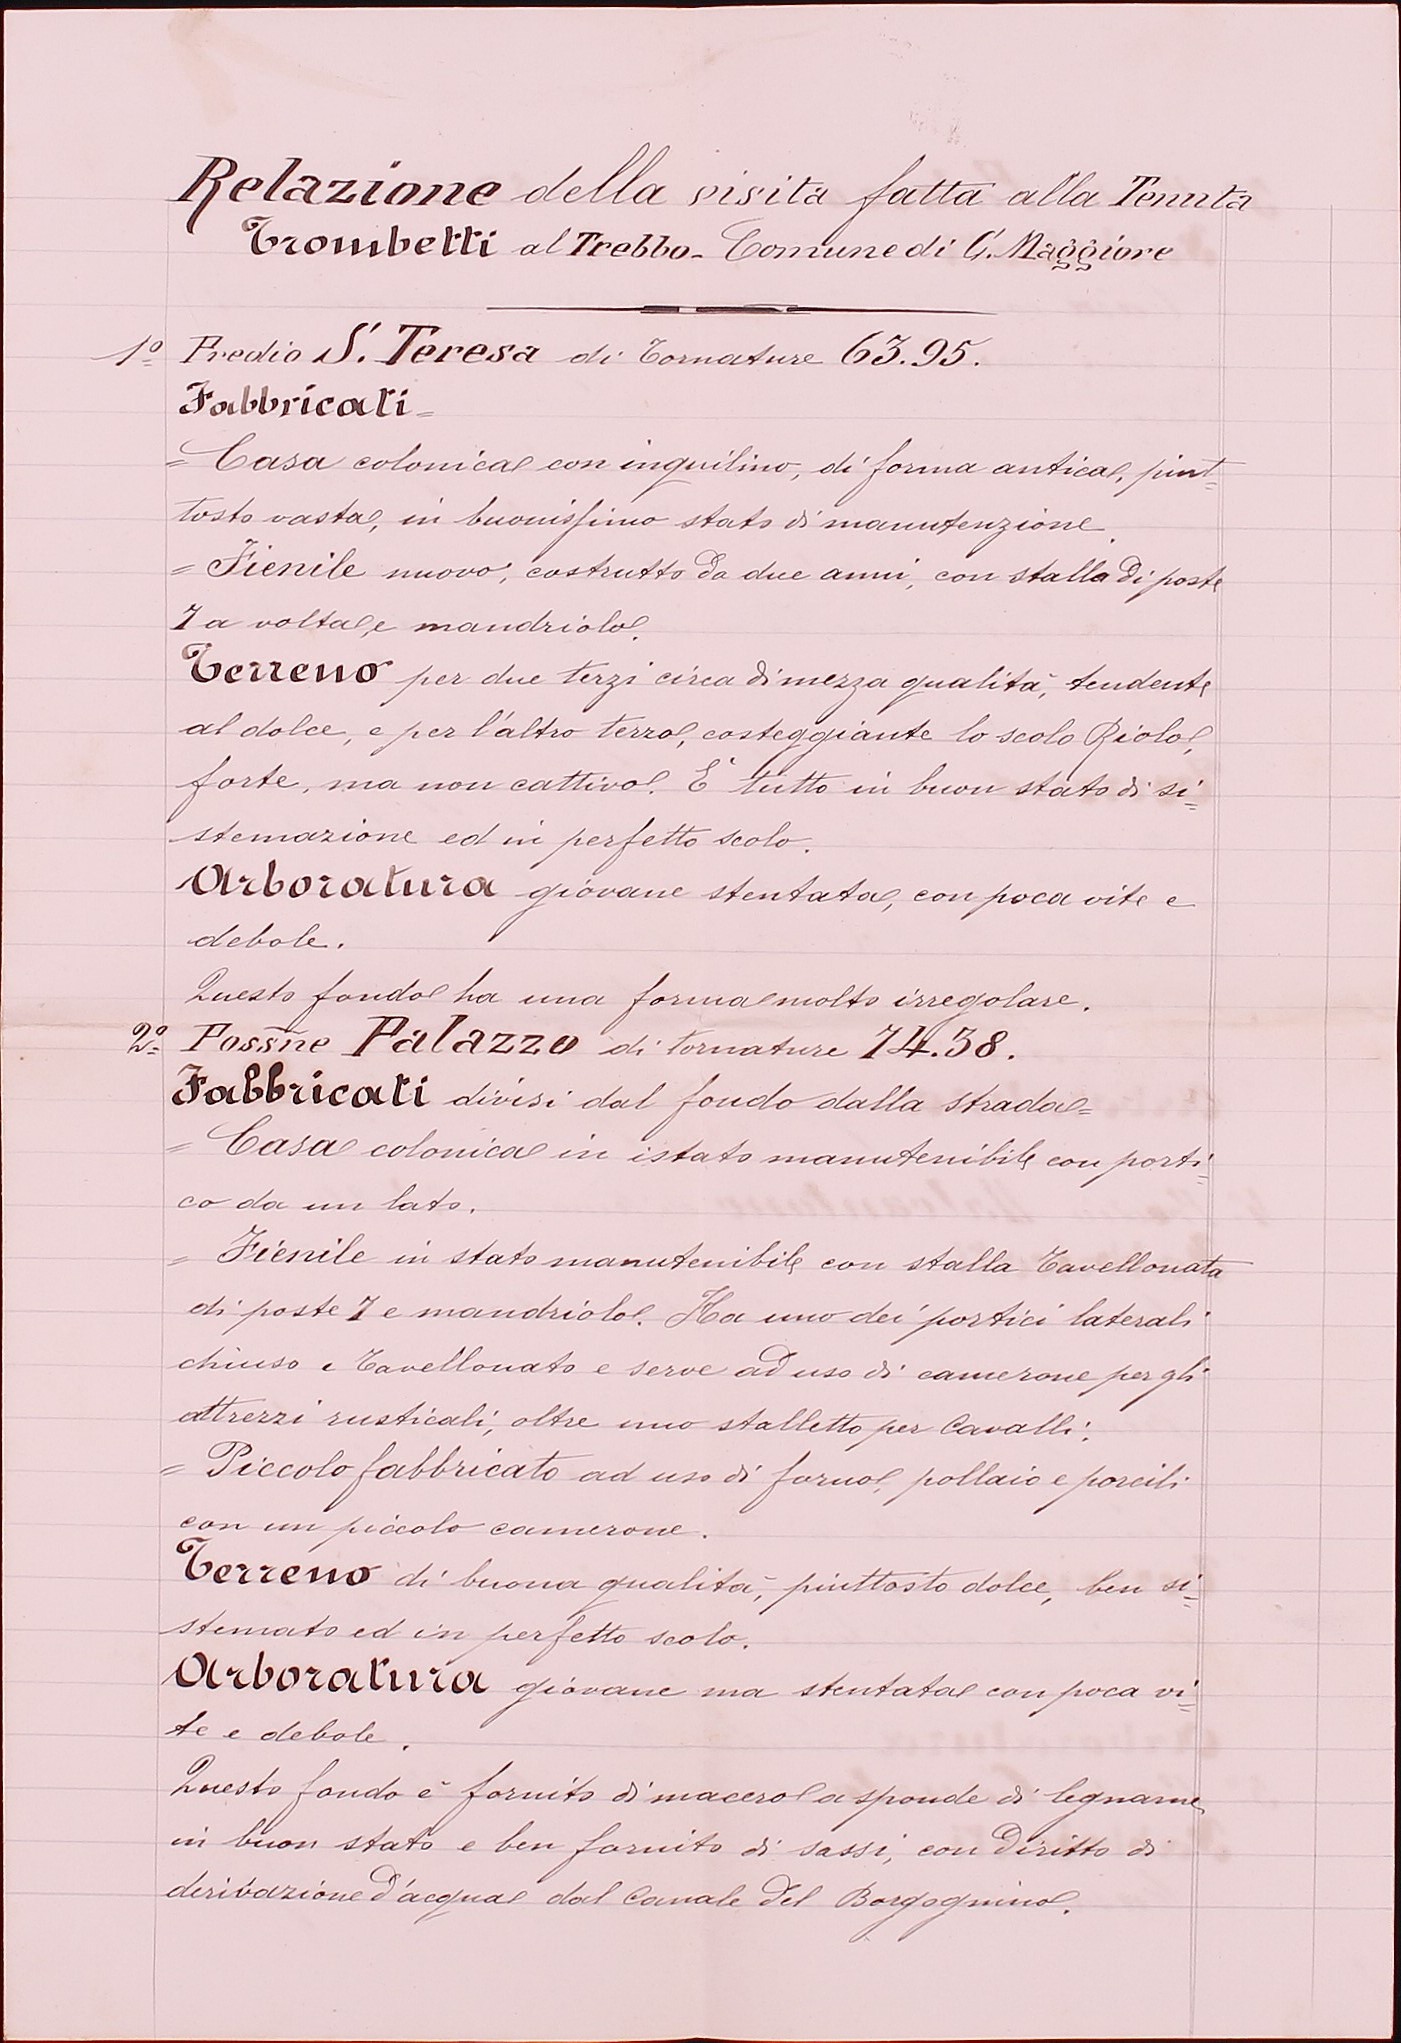 Relazione della visita fatta alla Tenuta
Trombetti al Trebbo - Comune di C. Maggiore
1º Predio S. Teresa di Tornature 63.95.
Fabbricati =
= Casa colonica con inquilino, di forma antica, piut=
tosto vasta, in buonissimo stato di manutenzione.
= Fienile nuovo, costrutto da due anni, con stalla di poste
7 a volta, e mandriolo.
Terreno per due terzi circa di mezza qualità, tendente
al dolce, e per l'altro terzo, costeggiante lo scolo Riolo,
forte, ma non cattivo. È tutto in buon stato di si=
stemazione ed in perfetto scolo.
Arboratura giovane stentata, con poca vite e
debole.
Questo fondo ha una forma molto irregolare.
2º Possne Palazzo di tornature 74.38.
Fabbricati divisi dal fondo dalla strada =
= Casa colonica in istato manutenibile con porti=
co da un lato.
= Fienile in stato manutenibile con stalla Tavellonata
di poste 7 e mandriolo. Ha uno dei portici laterali
chiuso e Tavellonato e serve ad uso di camerone per gli
attrezzi rusticali, oltre uno stalletto per Cavalli.
= Piccolo fabbricato ad uso di forno, pollaio e porcili
con un piccolo camerone.
Terreno di buona qualità, piuttosto dolce, ben si=
stemato ed in perfetto scolo.
Arboratura giovane ma stentata con poca vi=
te e debole.
Questo fondo è fornito di macero a sponde di legname
in buon stato e ben fornito di sassi, con Diritto di
derivazione d'acqua dal Canale del Borgognino.